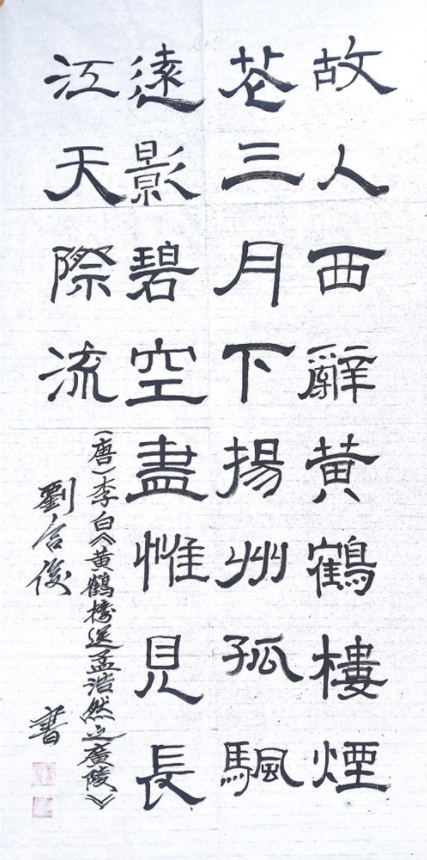 故人西辭黃鶴樓煙
花三月下揚州孤颿
遠影碧空盡惟見長
江天際流
(唐)李白《黃鶴樓送孟浩然之廣陵》
劉合俊 書